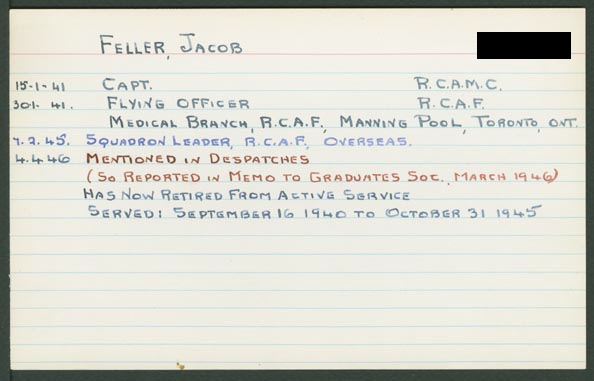 FELLER, JACOB
15-1-41 CAPT. R.C.A.M.C.
30-1-41. FLYING OFFICER R.C.A.F.
MEDICAL BRANCH, R.C.A.F., MANNING POOL, TORONTO, ONT.
7.2.45. SQUADRON LEADER, R.C.A.F., OVERSEAS.
4.4.46 MENTIONED IN DESPATCHES
(SO REPORTED IN MEMO TO GRADUATES SOC., MARCH 1946)
HAS NOW RETIRED FROM ACTIVE SERVICE
SERVED: SEPTEMBER 16 1940 TO OCTOBER 31 1945